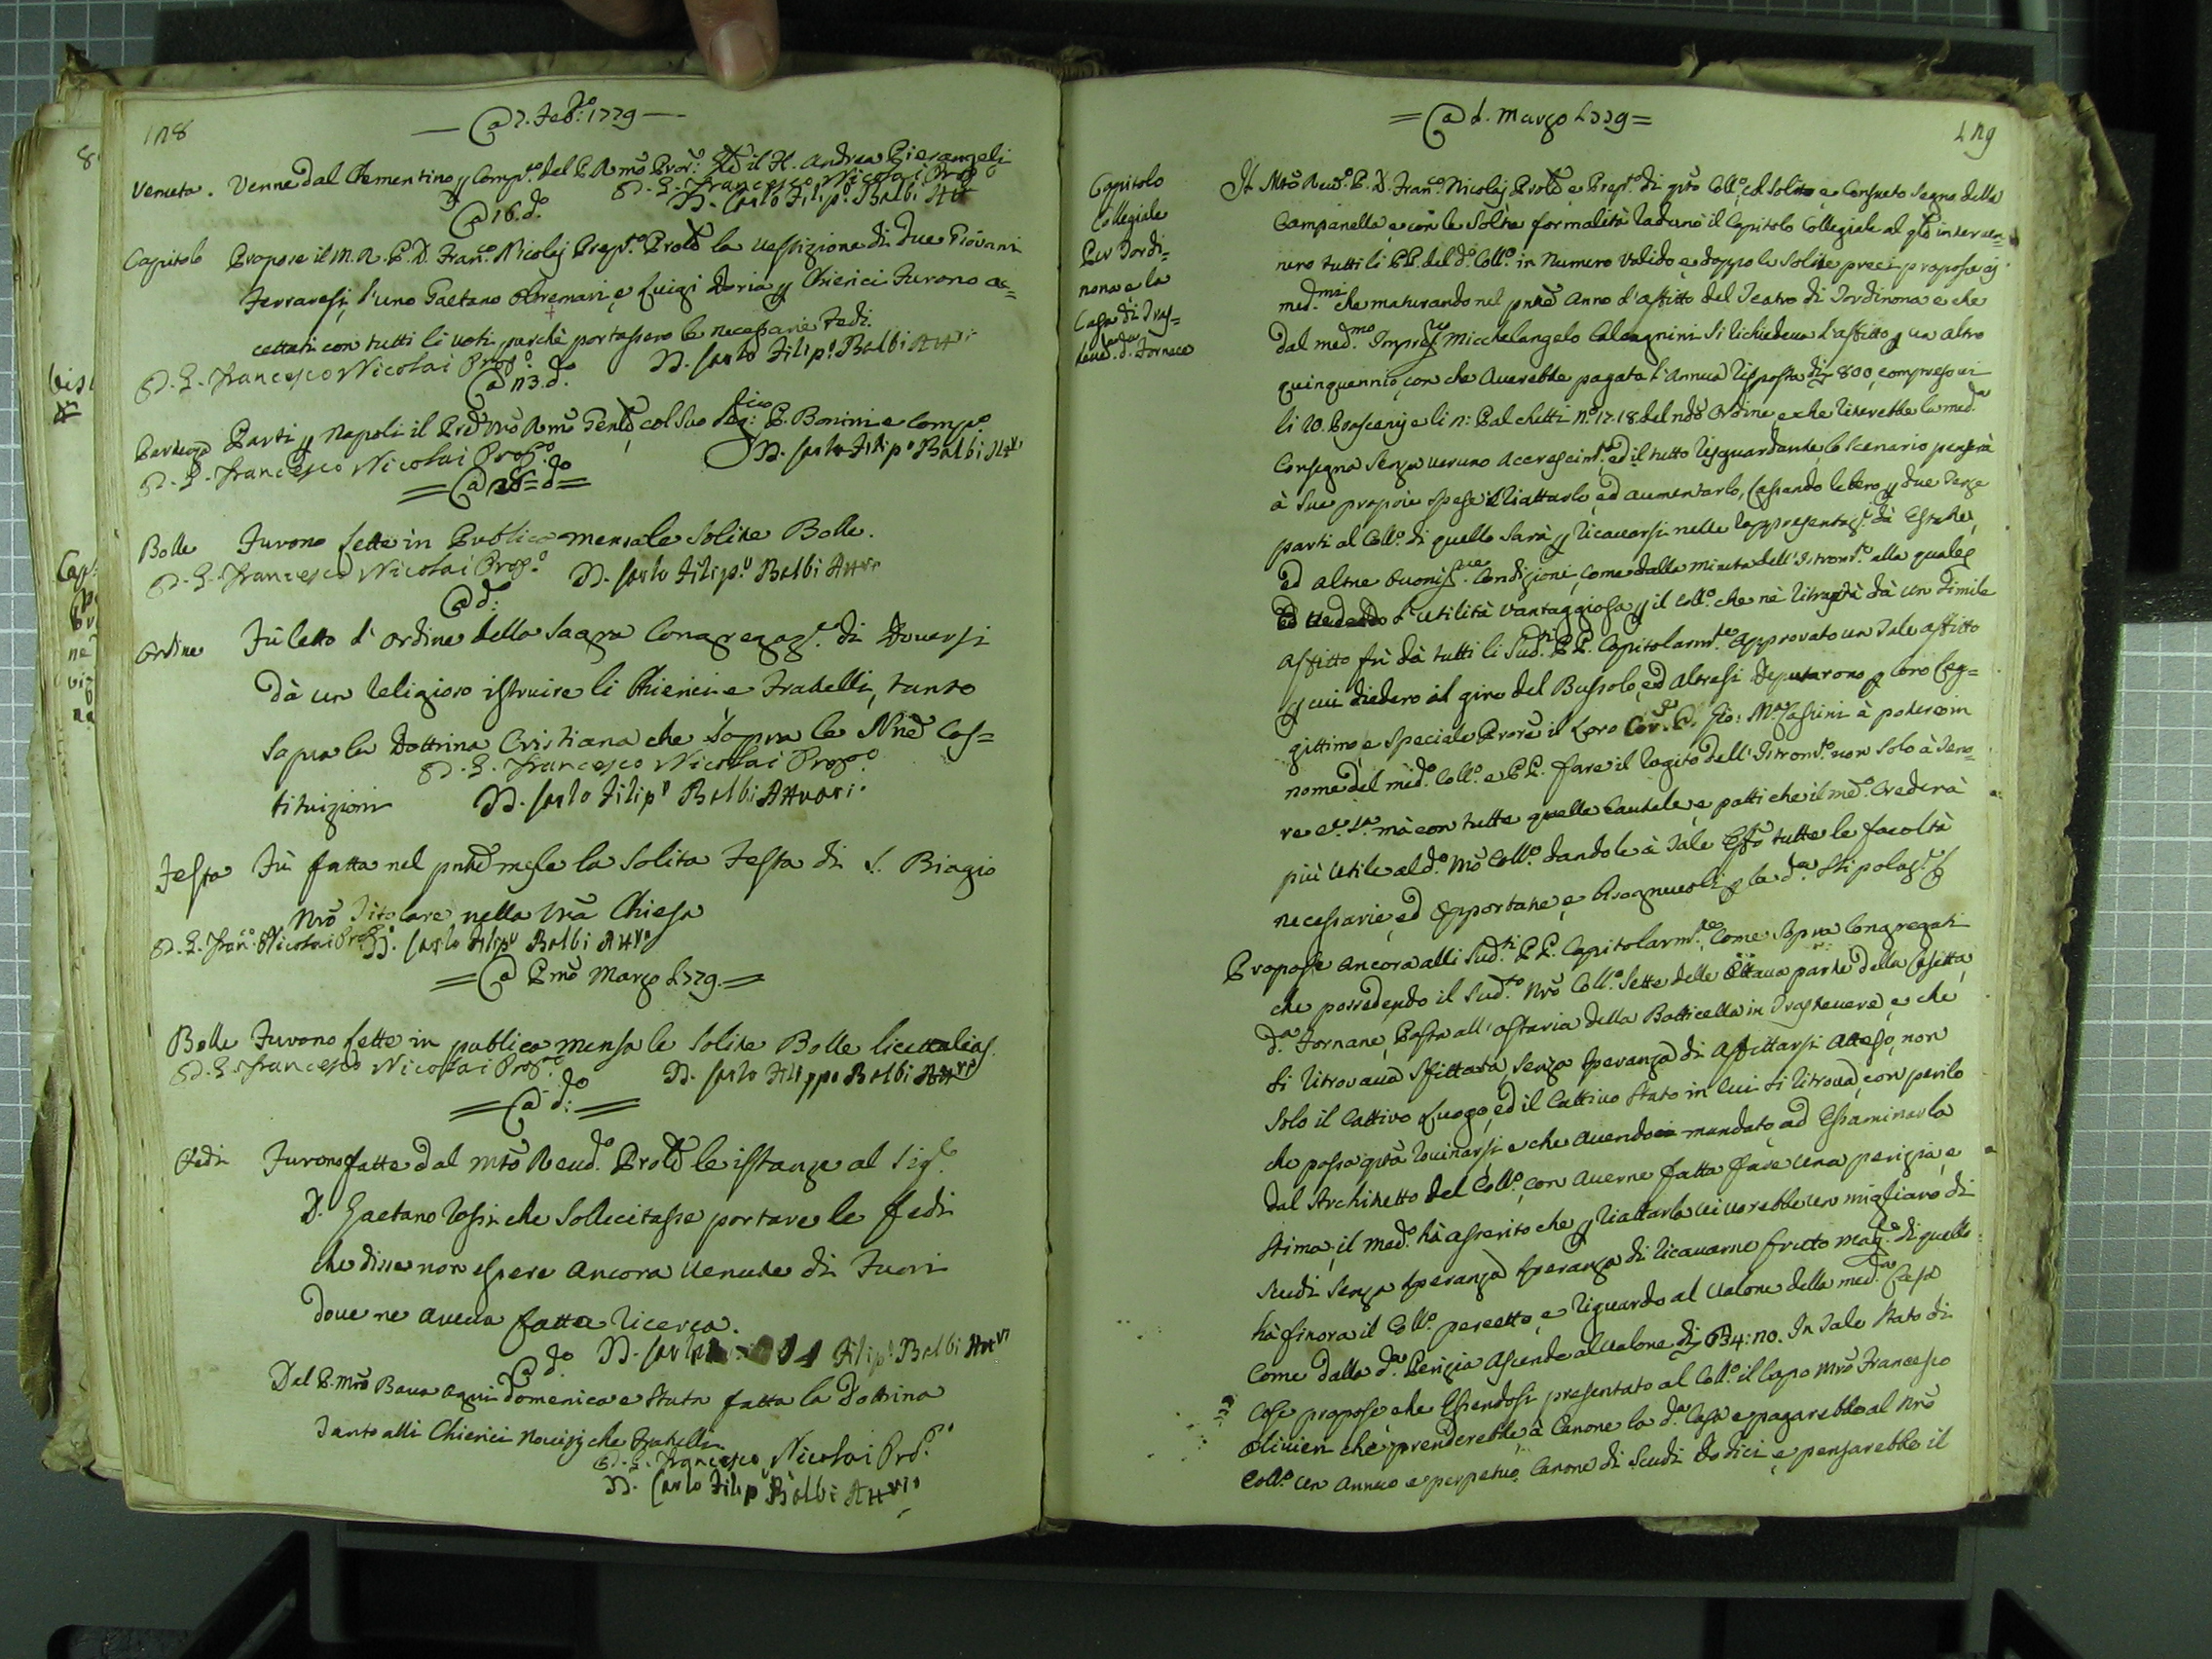 118
— @ 7. Feb.º 1779 —
Venuta. Venne dal Clementino p Comp.º del P. Rmo Pror: Gle il H. Andrea Pierangeli
D. G. Francesco Nicolai Prop.º
D. Carlo Filip.º Balbi Att.
@ 16. d.º
Capitolo Propose il M. R. P. D. Fran.co Nicolaj Prep.to Prole la vestizione di due Giovani
Ferraresi, l'uno Gaetano Oltremari, e Luigi Doria p Chierici furono ac=
cettati con tutti li voti, purchè portassero le necessarie Fedi.
D. G. Francesco Nicolai Prop.º D. Carlo Filip.º Balbi Att.ri
@ 23. d.º
Partenza Partì p Napoli il Prd. Nro Rmo Genle, col suo Seg: P. Bonini e Comp.º
D. G. Francesco Nicolai Prop.º D. Carlo Filip.º Balbi Att.ri
= @ 26 = d.º =
Bolle Furono lette in Publica mensa le Solite Bolle.
D. G. Francesco Nicolai Prop.º D. Carlo Filip.º Balbi Att.ri
@ d.º
Ordine Fù letto l'ordine della Sagra Congregaz.e di Doversi
dà un Religioso istruire li Chierici, e Fratelli, tanto
Sopra la Dottrina Cristiana che Sopra le Nre Cos=
D. G. Francesco Nicolai Prop.º
tituizioni D. Carlo Filip.º Balbi Attuari.
Festa Fù fatta nel pnte mese la Solita Festa di S. Biagio
Nro Titolare nella Nra Chiesa
D. G. Fran.º Nicolai Prop.º D. Carlo Filip.º Balbi Att.ro
= @ Pmo Marzo 1779. =
Bolle Furono lette in publica mensa le Solite Bolle
D. G. Francesco Nicolai Prop.º D. Carlo Filippo Balbi Att.ri
= @ d.º =
Fedi Furono fatte dal mto Reud.º Prole le istanze al Sig.r
D. Gaetano Rossi che Sollecitasse portare le fedi
che disse non essere Ancora venute di Fuori
dove ne aveva fatta ricerca.
D. Carlo Filip.º Balbi Att.ri
@ d.º
Dal P. Mro Bava ogni Domenica è Stata fatta la Dottrina
Tanto alli Chierici Novizj che Fratelli.
D. G. Francesco Nicolai Prop.º
D. Carlo Filip.º Balbi Att.rio
= @ d. Marzo 1779 =
119
Capitolo
Collegiale
Per Tordi=
nona e la
Casa di Tras=
teve.e d.a Fornace
Il Mto Reud.º P. D. Fran.º Nicolaj Prole e Prep.to di qto Coll.º col Solito, e Consueto Segno della
Campanella, e con le Solite formalità radunò il Capitolo Collegiale al qle interven=
nero tutti li PP. del d.º Coll.º in Numero valido, e doppo le Solite preci propose ai
med.mi che maturando nel pnte Anno l'affitto del Teatro di Tordinona e che
dal med.mo Impres.º Micchelangelo Calcagnini Si richiedeva l'affitto p un altro
quinquennio, con che Averebbe pagata l'Annua Risposta di 800, compresovi
li Proscenj e li Palchetti N.º 17. 18. del ndo Ordine, e che riceverebbe la med.a
Consegna Senza veruno Accrescim.to, ed il tutto risguardante lo Scenario penserà
à Sue proprie Spese Riattarlo, ed aumentarlo, lassando libero p due Terze
parti al Coll.º di quello Sarà p ricavarsi nelle rappresentaz.i dà Estate,
ed altre buoniss.me Condizioni, come dalla minuta dell'Istrom.to alla quale
Ed vedendo l'utilità vantaggiosa p il Coll.º che nè ritrarrà dà un Simile
Affitto fù dà tutti li Sud.ti PP. Capitolarm.te Approvato un tale affitto
p cui diedero il giro del Bussolo, ed altresì Deputarono p loro Leg=
gittimo, e Speciale Prore il loro P. Gio: Ma Cassini à poter in
nome del med.º Coll.º e PP. fare il rogito dell'Istrom.to non Solo à teno=
re mà con tutte quelle Cautele, e patti che il me.º Crederà
più Utile al d.º Nro Coll.º dandole à Tale Effo tutte le facoltà
necessarie, ed Opportune, e bisognevoli p la d.a Stipolaz.e
Propose Ancora alli Sud.ti PP. Capitolarm.te Come Sopra Congregati
che possedendo il Sud.to Nro Coll.º Sette delle Ottava parte della Casetta
d.a Fornace, Posta all'ostaria della Botticella in Trastevere, e che
Si ritrovava Sfittata, Senza Speranza di Affittarsi Atteso, non
Solo il Cattivo Luogo, ed il Cattivo Stato in cui Si ritrova, con perilo
che possa qta rovinarsi e che Avendo mandato ad Essaminarla
dal Architetto del Coll.º, con Averne fatta fare una perizia, e
Stima, il med.º hà asserito che p riattarla vi vorrebbe un migliaro di
Scudi Senza Speranza Speranza di ricavarne frutto mag.e di quello
hà finora il Coll.º percetto, e riguardo al valore della med.a Casa
Come dalla d.a Perizia Ascende al valore di 634: 20. In Tale Stato di
Cose propose che Essendosi presentato al Coll.º il Capo Mro Francesco
Olivieri che prenderebbe à Canone la d.a Casa e pagarebbe al Nro
Coll.º un Annuo e perpetuo Canone di Scudi Dodici e pensarebbe il